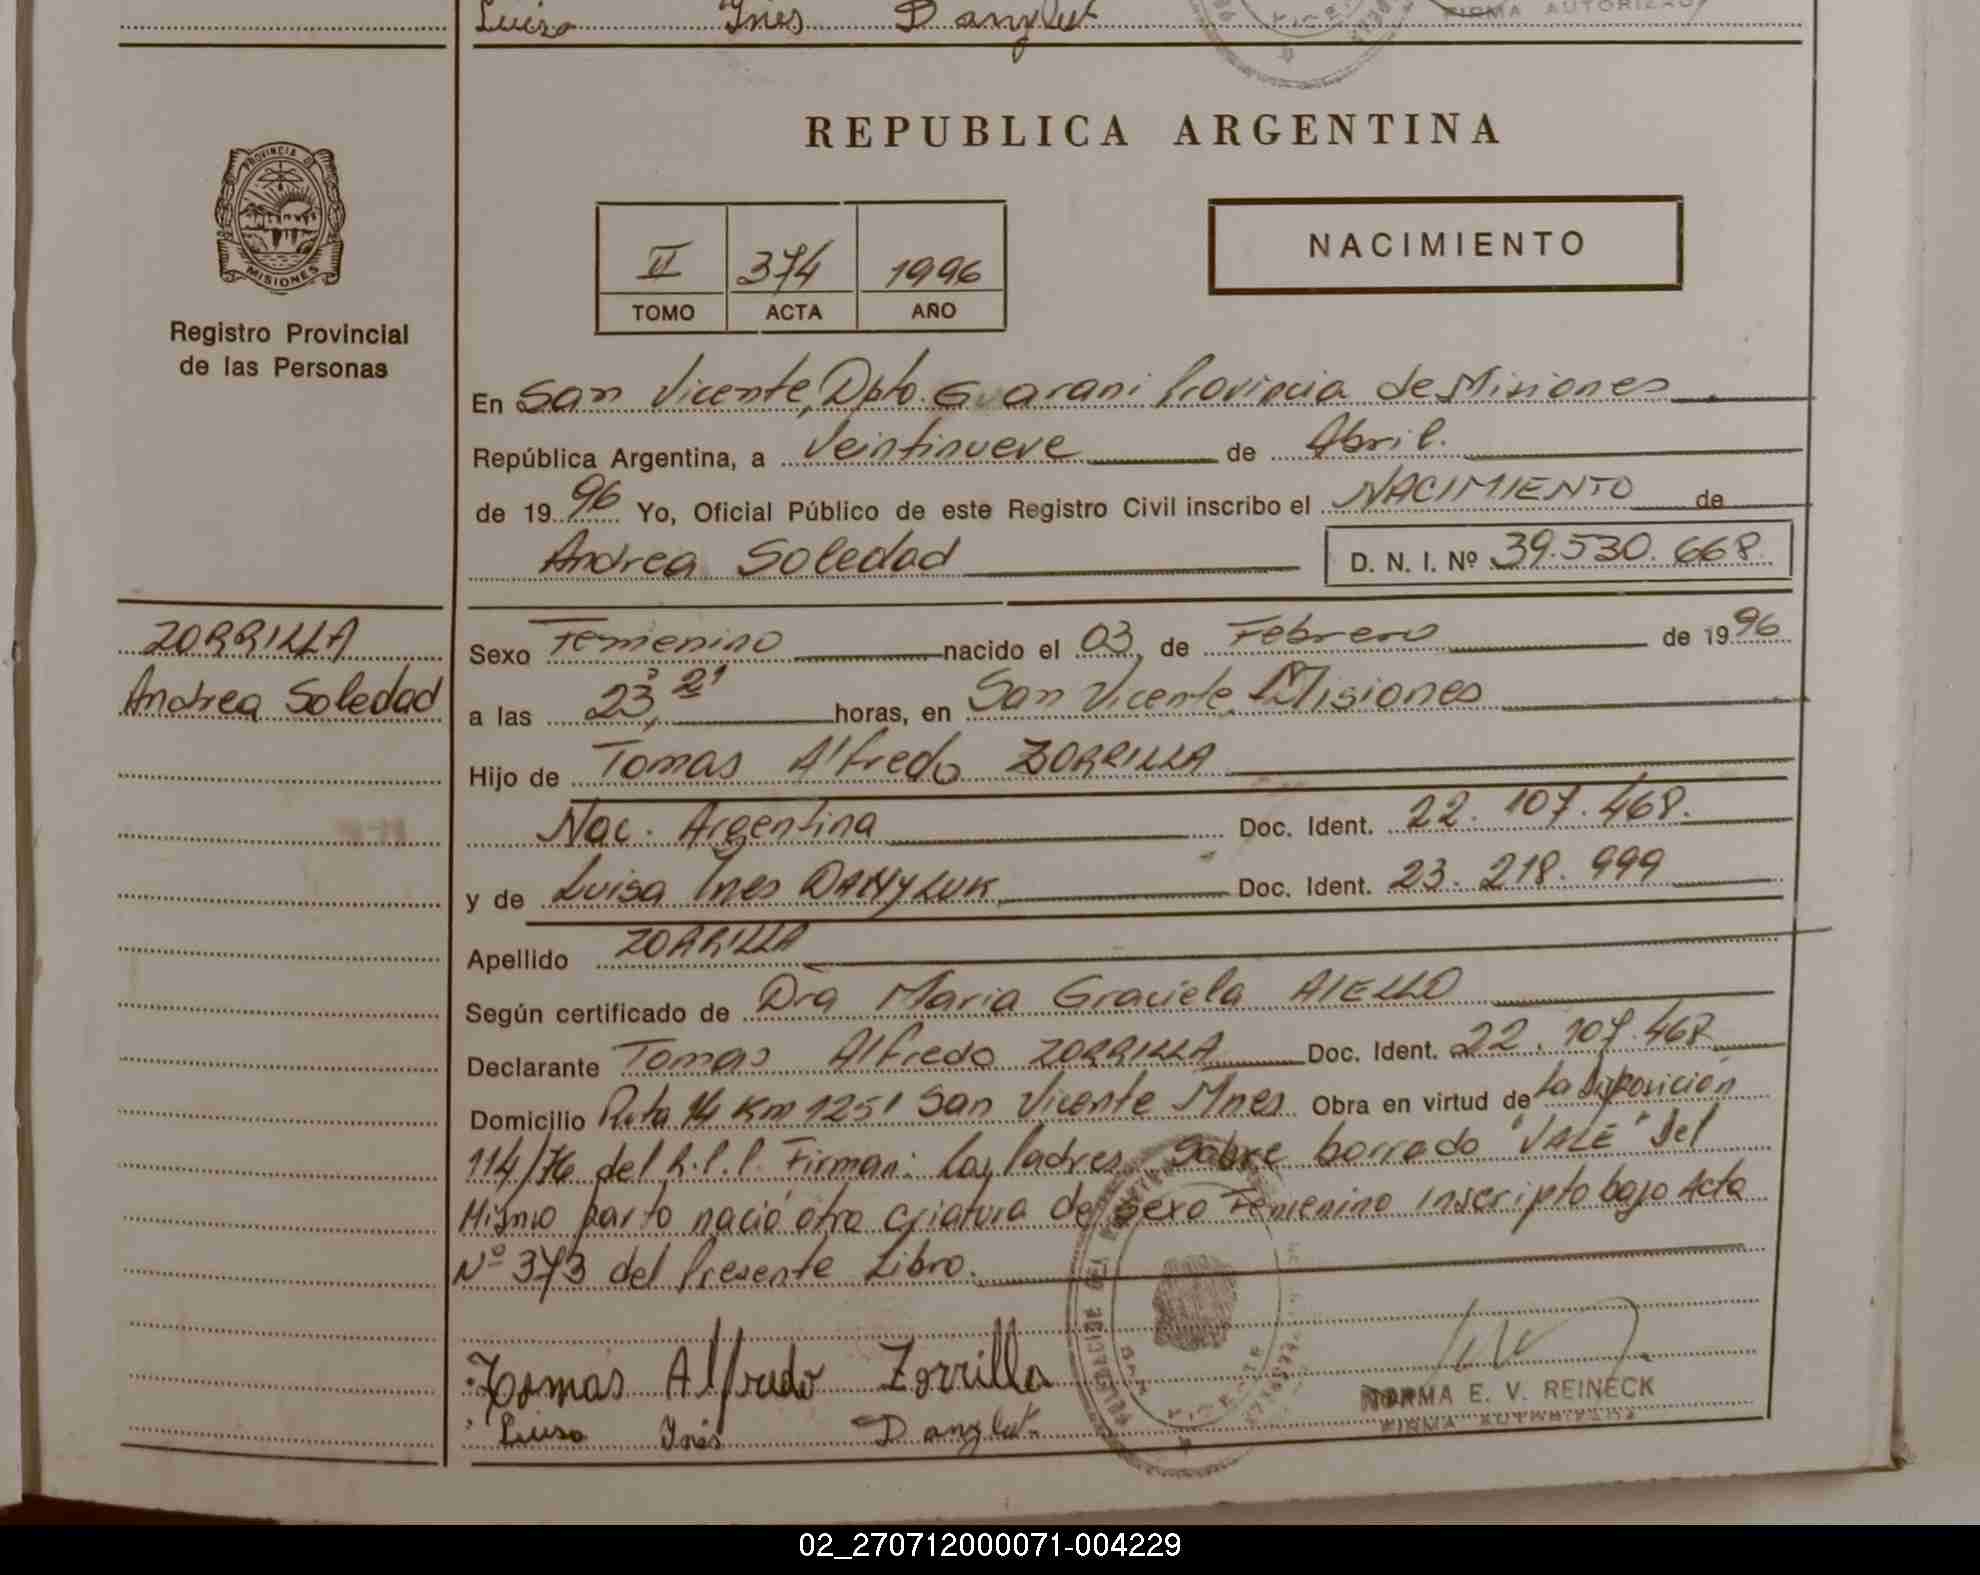 Luisa Ines Danyluk
FIRMA AUTORIZADA
PROVINCIA DE
MISIONES
Registro Provincial
de las Personas
REPUBLICA ARGENTINA
II 374 1996
TOMO ACTA AÑO
NACIMIENTO
En San Vicente, Dpto. Guarani Provincia de Misiones
República Argentina, a Veintinueve de Abril.
de 1996 Yo, Oficial Público de este Registro Civil inscribo el NACIMIENTO de
Andrea Soledad D. N. I. Nº 39.530.668.
ZORRILLA
Andrea Soledad
Sexo Femenino nacido el 03, de Febrero de 1996
a las 23, 21 horas, en San Vicente, Misiones
Hijo de Tomas Alfredo ZORRILLA
Nac. Argentina Doc. Ident. 22.107.468.
y de Luisa Ines DANYLUK Doc. Ident. 23.218.999
Apellido ZORRILLA
Según certificado de Dra Maria Graciela AIELLO
Declarante Tomas Alfredo ZORRILLA Doc. Ident. 22.107.468
Domicilio Ruta 14 Km 1251 San Vicente Mnes Obra en virtud de la disposición
114/76 del R.P.P. Firman: Los Padres. Sobre borrado "VALE" Del
Mismo parto nació otra criatura de sexo Femenino inscripto bajo Acta
Nº 373 del Presente Libro.
Tomas Alfredo Zorrilla
Luisa Inés Danyluk
NORMA E. V. REINECK
FIRMA AUTORIZADA
02_270712000071-004229